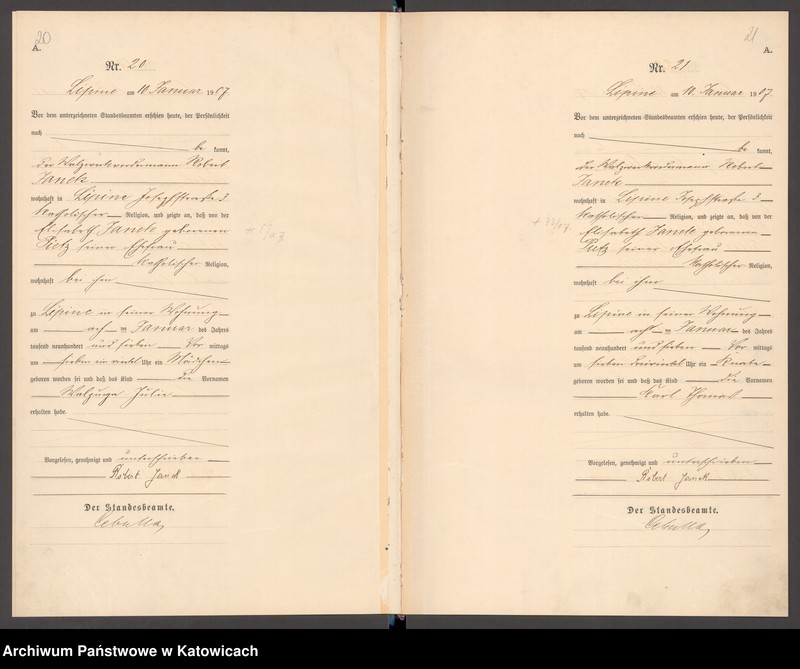 20
A.
Nr. 20
Lipine am 10. Januar 1907.
Vor dem unterzeichneten Standesbeamten erschien heute, der Persönlichkeit
nach
be kannt,
der Walzwerksvordermann Robert
Janek
wohnhaft in Lipine Josephstraße 2
katholischer Religion, und zeigte an, daß von der
Elisabeth Janek geborenen
seiner Ehefrau
katholischer Religion,
wohnhaft bei ihm
zu Lipine in seiner Wohnung
am acht en Januar des Jahres
tausend neunhundert und sieben Vor mittags
um sieben ein viertel Uhr ein Mädchen
geboren worden sei und daß das Kind die Vornamen
Walpurga Julie
erhalten habe.
Vorgelesen, genehmigt und unterschrieben
Robert Janek
Der Standesbeamte.
Cebulla
21
A.
Nr. 21
Lipine am 10. Januar 1907.
Vor dem unterzeichneten Standesbeamten erschien heute, der Persönlichkeit
nach
be kannt,
der Walzwerksvordermann Robert
Janek
wohnhaft in Lipine Josephstraße 2
katholischer Religion, und zeigte an, daß von der
Elisabeth Janek geborenen
seiner Ehefrau
katholischer Religion,
wohnhaft bei ihm
zu Lipine in seiner Wohnung
am acht en Januar des Jahres
tausend neunhundert und sieben Vor mittags
um sieben dreiviertel Uhr ein Knabe
geboren worden sei und daß das Kind die Vornamen
Karl Thomas
erhalten habe.
Vorgelesen, genehmigt und unterschrieben
Robert Janek
Der Standesbeamte.
Cebulla
Archiwum Państwowe w Katowicach